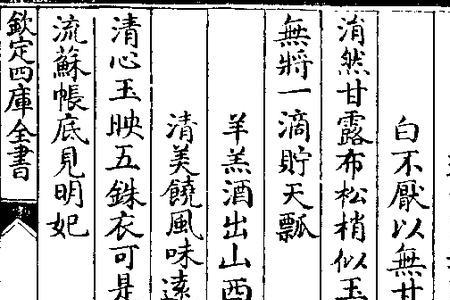 白不厭以無
湑然甘露布松梢似玉
無將一滴貯天瓢
羊羔酒出山西
清美饒風味逺
清心玉映五銖衣可是
流蘇帳底見明妃
欽定四庫全書